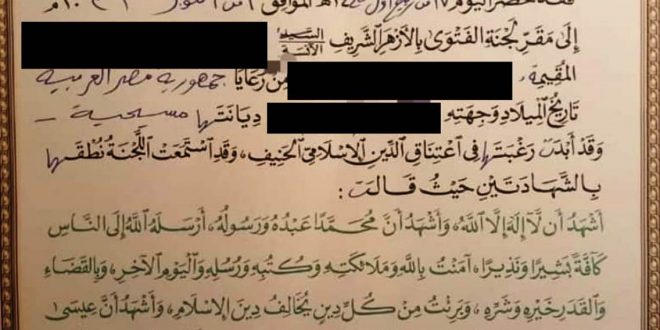 حضر اليوم
إِلَى مَقَرِّ لَجْنَةِ الْفَتْوَى بِالْأَزْهَرِ الشَّرِيفِ السيد الآنسة
الْمُقِيمَةِ مِنْ رَعَايَا جمهورية مصر العربية
تَارِيخُ الْمِيلَادِ وَجِهَتِهِ دِيَانَتها مسيحية -
وَقَدْ أَبْدَت رَغْبَتَها فِي اعْتِنَاقِ الدِّينِ الْإِسْلَامِيِّ الْحَنِيفِ، وَقَدِ اسْتَمَعَتِ اللَّجْنَةُ نُطْقَها
بِالشَّهَادَتَيْنِ حَيْثُ قَالَت :
أَشْهَدُ أَن لَّا إِلَهَ إِلَّا اللَّهُ، وَأَشْهَدُ أَنَّ مُحَمَّدًا عَبْدُهُ وَرَسُولُهُ، أَرْسَلَهُ اللَّهُ إِلَى النَّاسِ
كَافَّةً بَشِيرًا وَنَذِيرًا، آمَنْتُ بِاللَّهِ وَمَلَائِكَتِهِ وَكُتُبِهِ وَرُسُلِهِ وَالْيَوْمِ الْآخِرِ، وَبِالْقَضَاءِ
وَالْقَدَرِ خَيْرِهِ وَشَرِّهِ، وَبَرِئْتُ مِنْ كُلِّ دِينٍ يُخَالِفُ دِينَ الْإِسْلَامِ، وَأَشْهَدُ أَنَّ عِيسَى